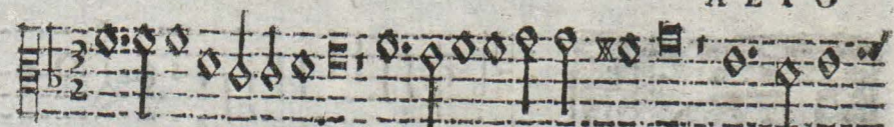 ALTO
3
2